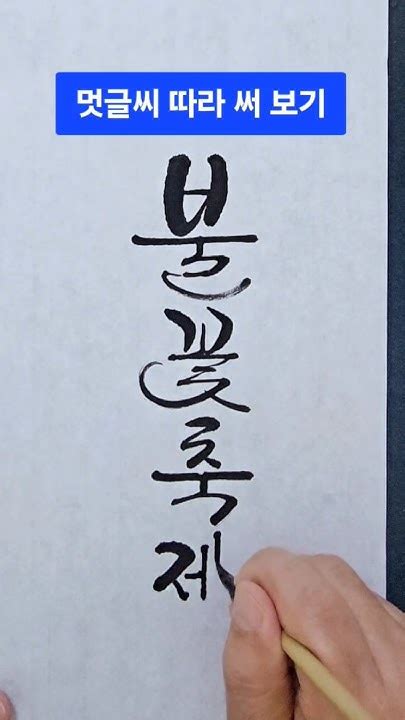 멋글씨 따라 써 보기
불
꽃
축
제